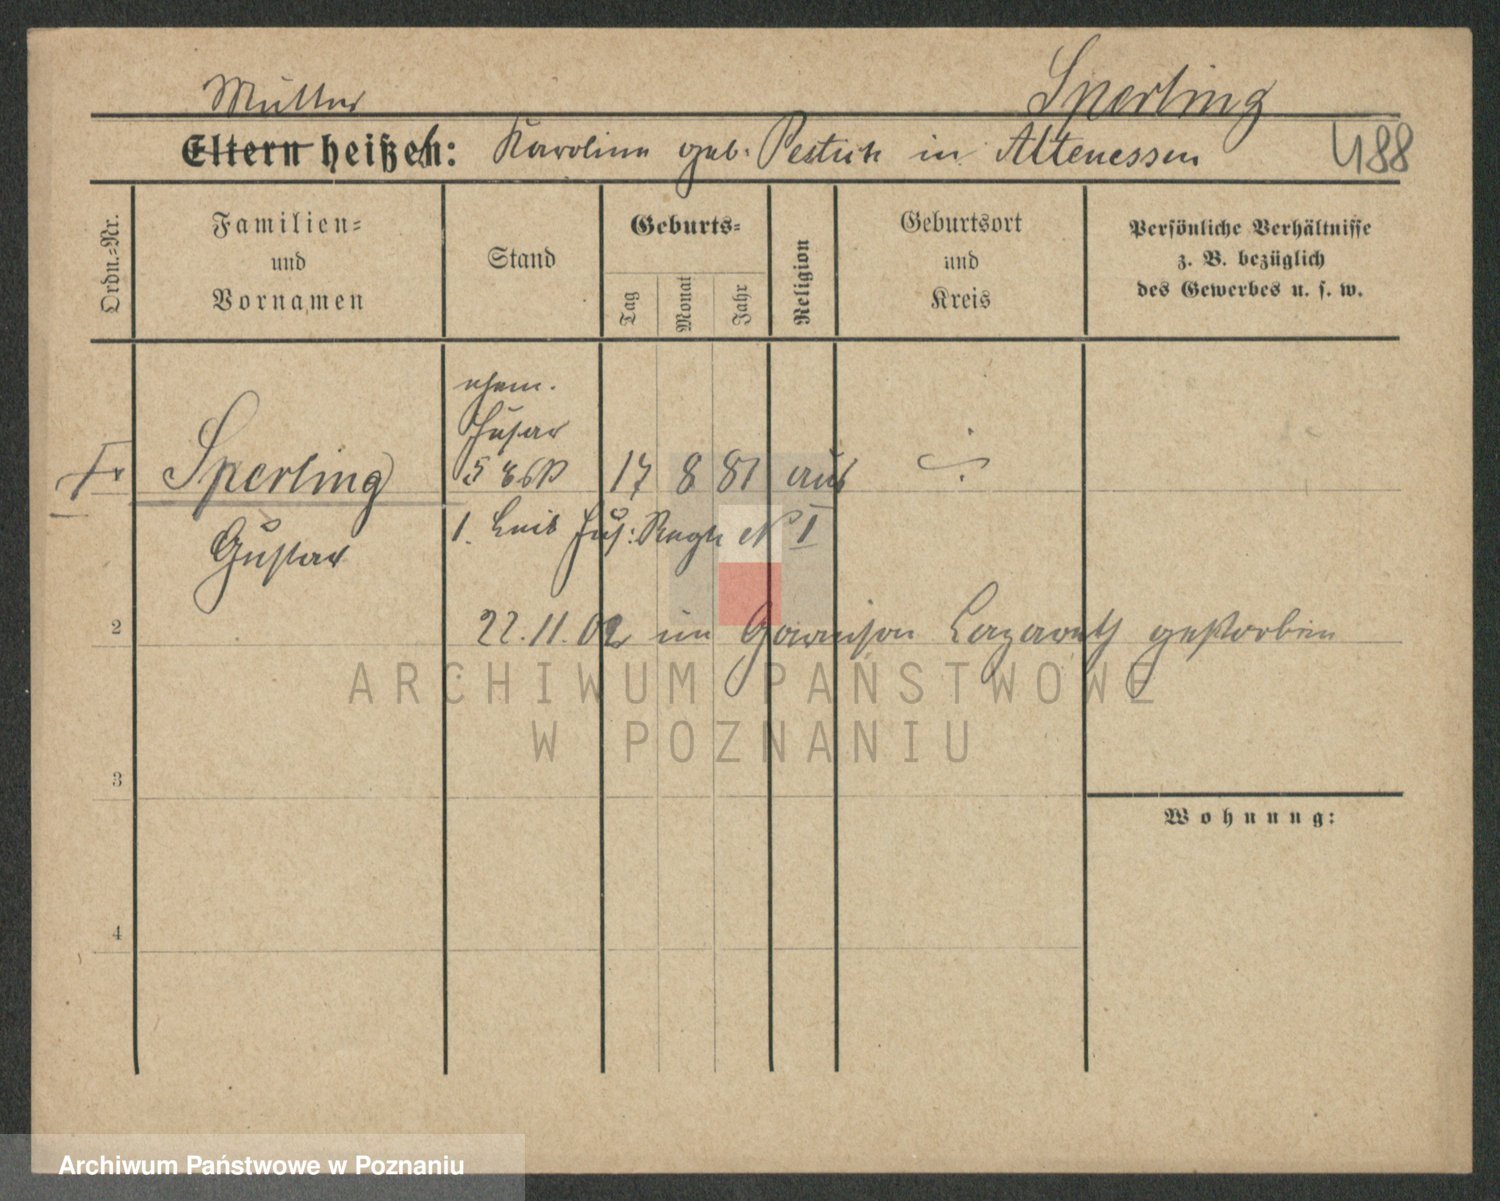 Mutter Sperling
Eltern heißen: Karoline geb. Pestuk in Altenessen 488
Ordn.-Nr.
Familien-
und
Vornamen
Stand
Geburts-
Tag
Monat
Jahr
Religion
Geburtsort
und
Kreis
Persönliche Verhältnisse
z. B. bezüglich
des Gewerbes u. s. w.
ehem.
Husar
Sperling 5 17 8 81
Gustav
1. Leib Hus: Regts № I
2
22.11.02 im Garnison Lazareth gestorben
ARCHIWUM PAŃSTWOWE
W POZNANIU
3
Wohnung:
4
Archiwum Państwowe w Poznaniu